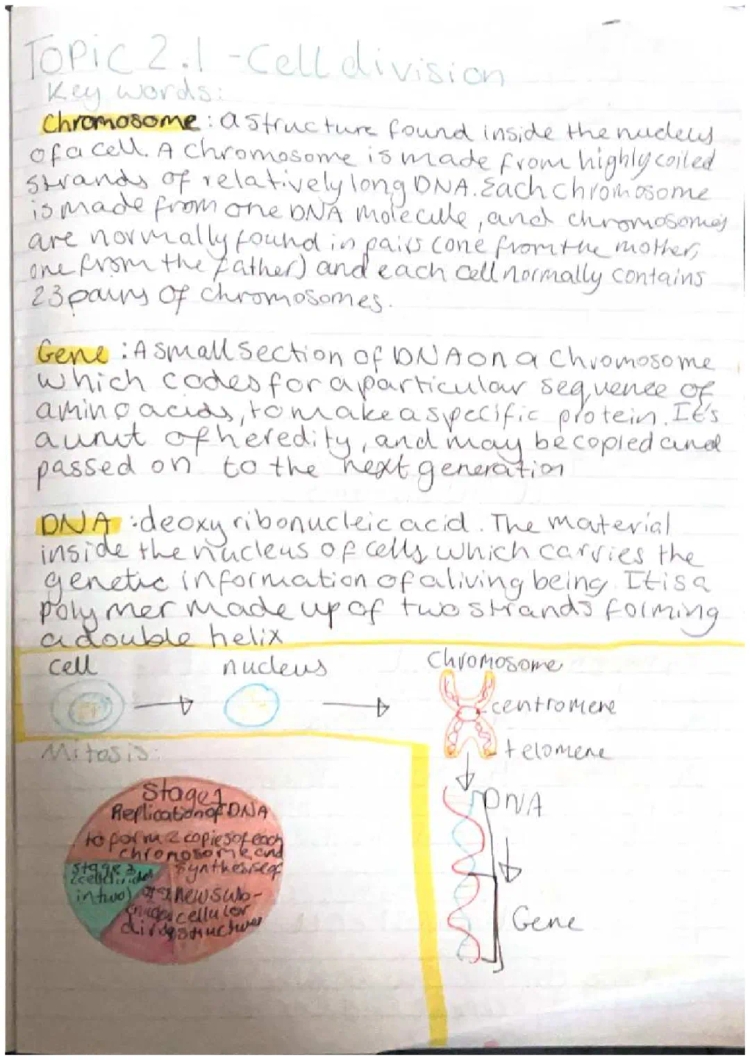 Topic 2.1 - Cell division
Key words:
Chromosome: a structure found inside the nucleus
of a cell. A chromosome is made from highly coiled
strands of relatively long DNA. Each chromosome
is made from one DNA molecule, and chromosomes
are normally found in pairs (one from the mother,
one from the father) and each cell normally contains
23 pairs of chromosomes.
Gene: A small section of DNA on a chromosome
which codes for a particular sequence of
amino acids, to make a specific protein. It's
a unit of heredity, and may be copied and
passed on to the next generation
DNA: deoxyribonucleic acid. The material
inside the nucleus of cells, which carries the
genetic information of a living being. It is a
polymer made up of two strands forming
a double helix
cell
nucleus
Chromosome
centromere
telomere
DNA
Gene
Mitosis:
Stage 1
Replication of DNA
to form 2 copies of each
chromosome and
synthesis of
new sub-
cellular
structures
stage 3
(cell divides
in two)